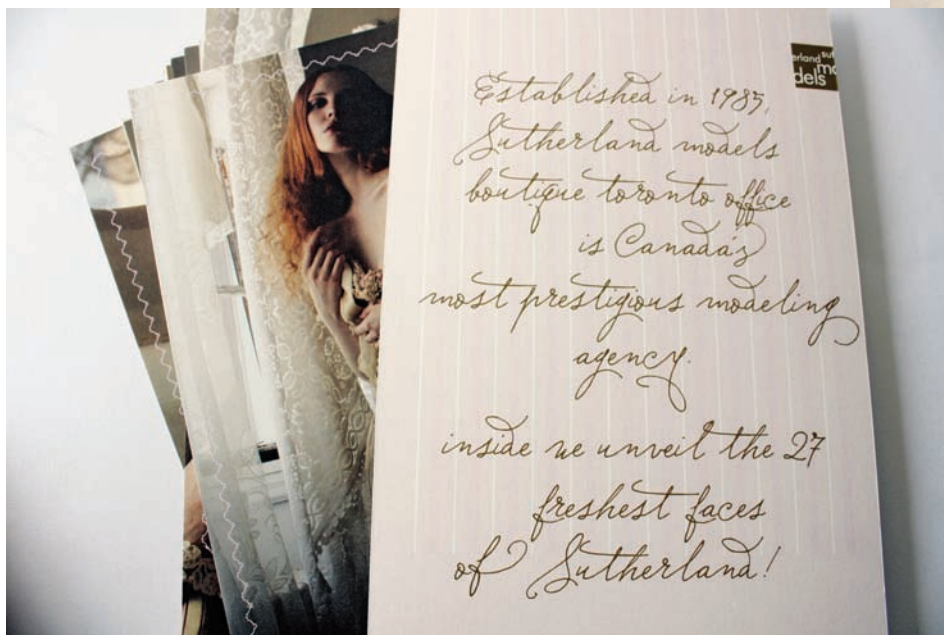 Established in 1985,
Sutherland models
boutique toronto office
is Canada's
most prestigious modeling
agency.
inside we unveil the 27
freshest faces
of Sutherland!
erland su
mo
dels